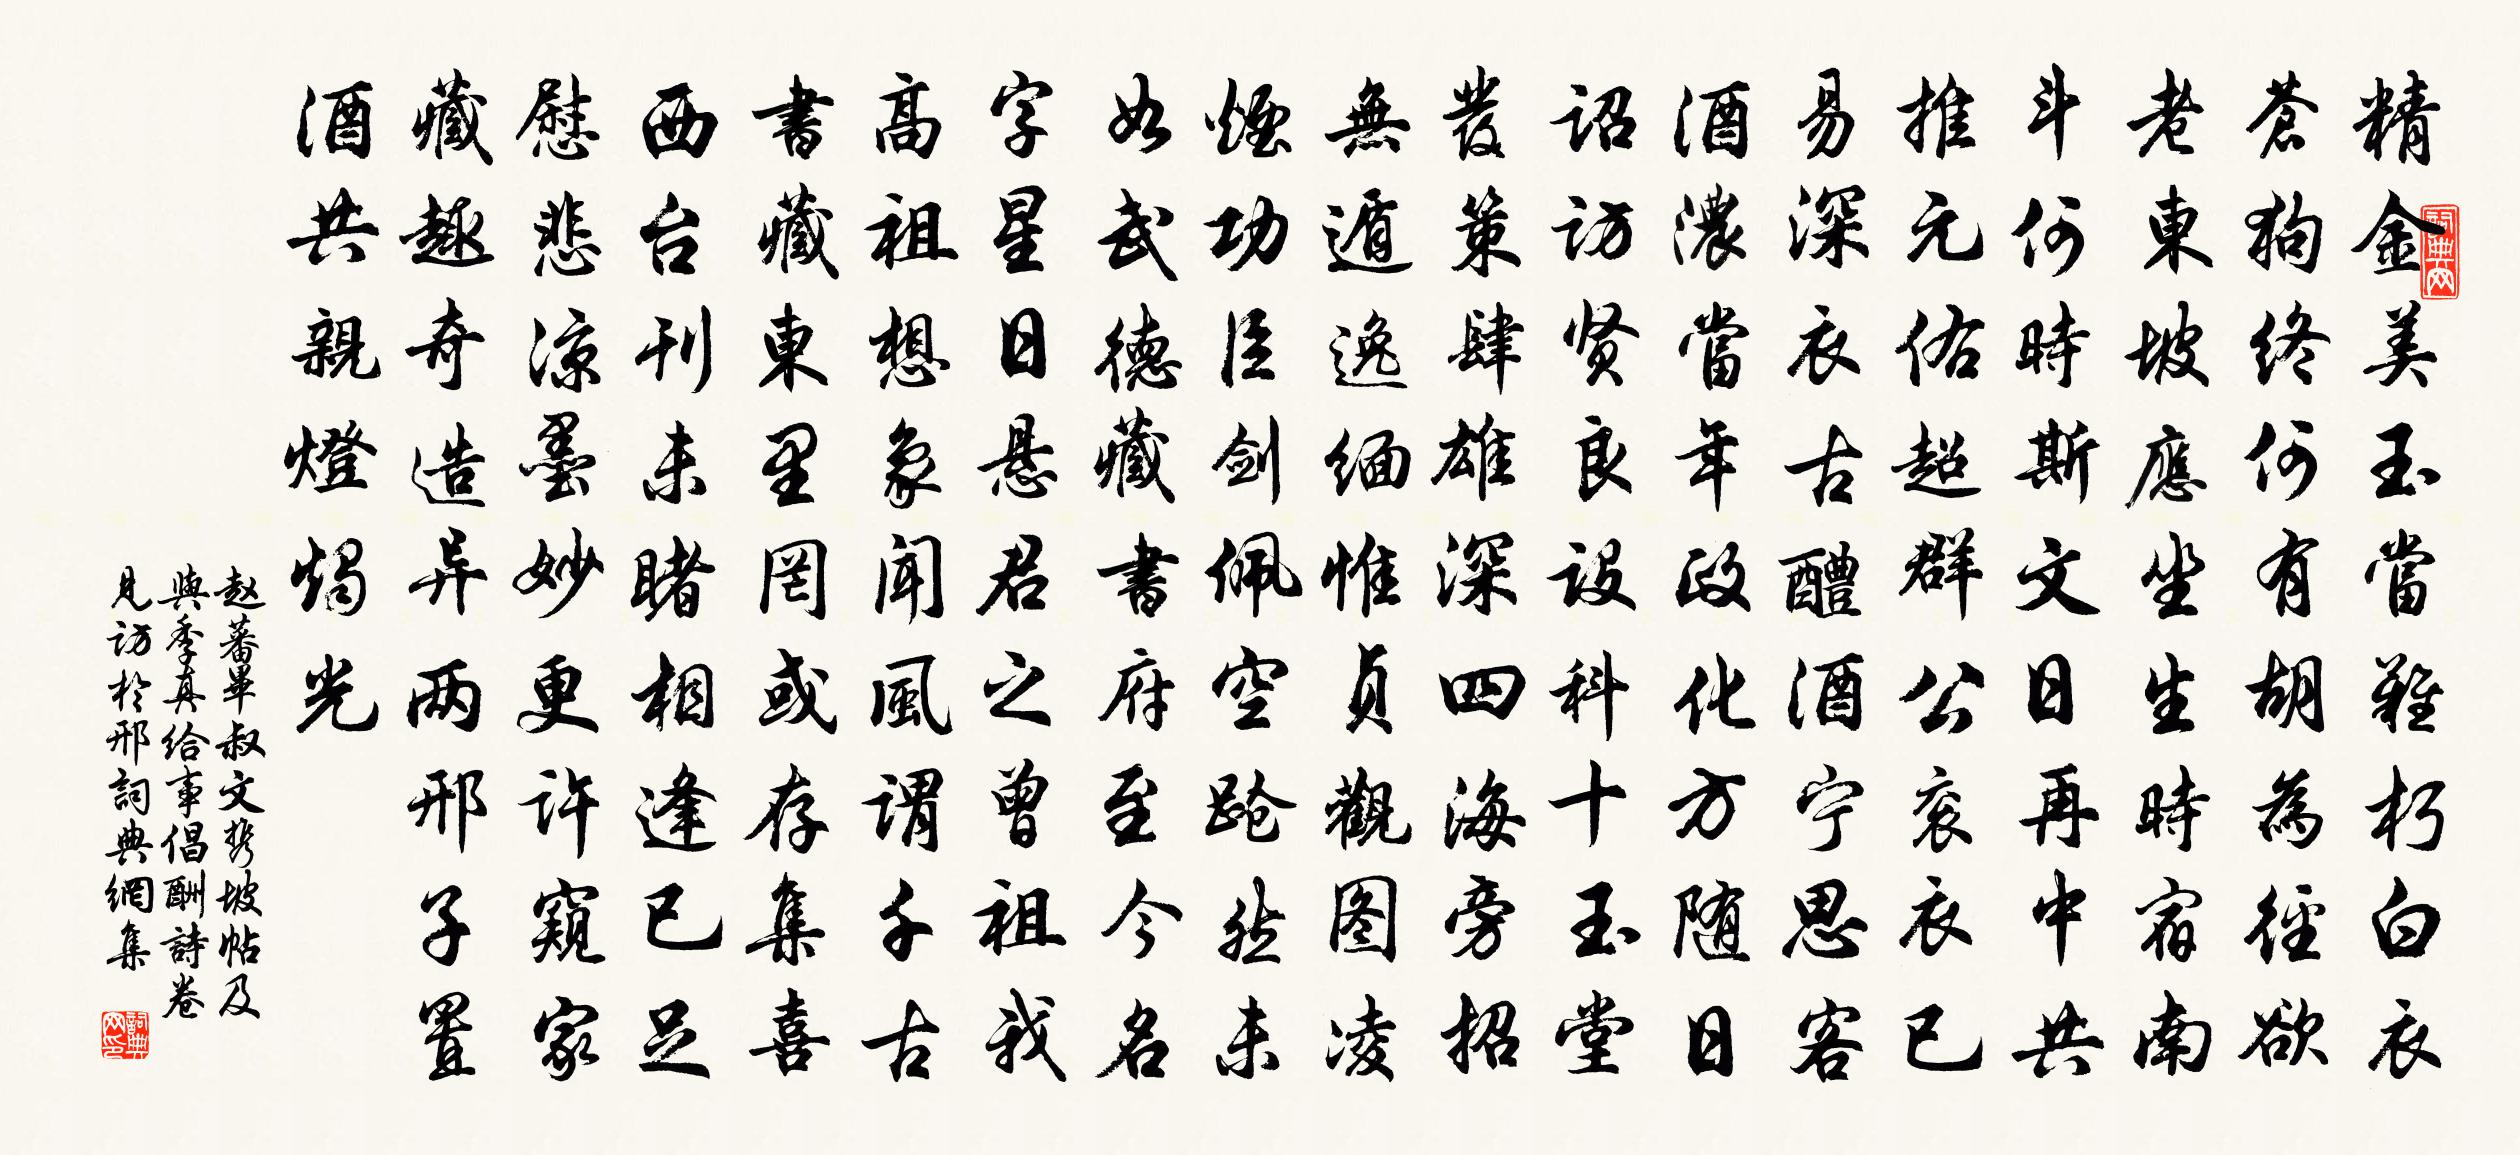 精金美玉當難朽白衣
蒼狗終何有胡為徑欲
老東坡應坐生時宿南
斗何時斯文日再中共
推元佑超群公衮衣已
易深衣古醴酒宁思客
酒濃當年政化方随日
詔訪贤良設科十玉堂
發策肆雄深四海旁招
無遁逸緬惟貞觀图凌
煙功臣剑佩空跄然未
如武德藏書府至今名
字星日悬君之曾祖我
高祖想象聞風謂千古
書藏東里罔或存集喜
西台刊未睹相逢已足
慰悲涼墨妙更許窺家
藏趣奇造异两邢子置
酒共親燈燭光
赵蕃畢叔文携坡帖及
與季真給事倡酬詩卷
見訪於邢詞典網集
詞典网
詞典网印